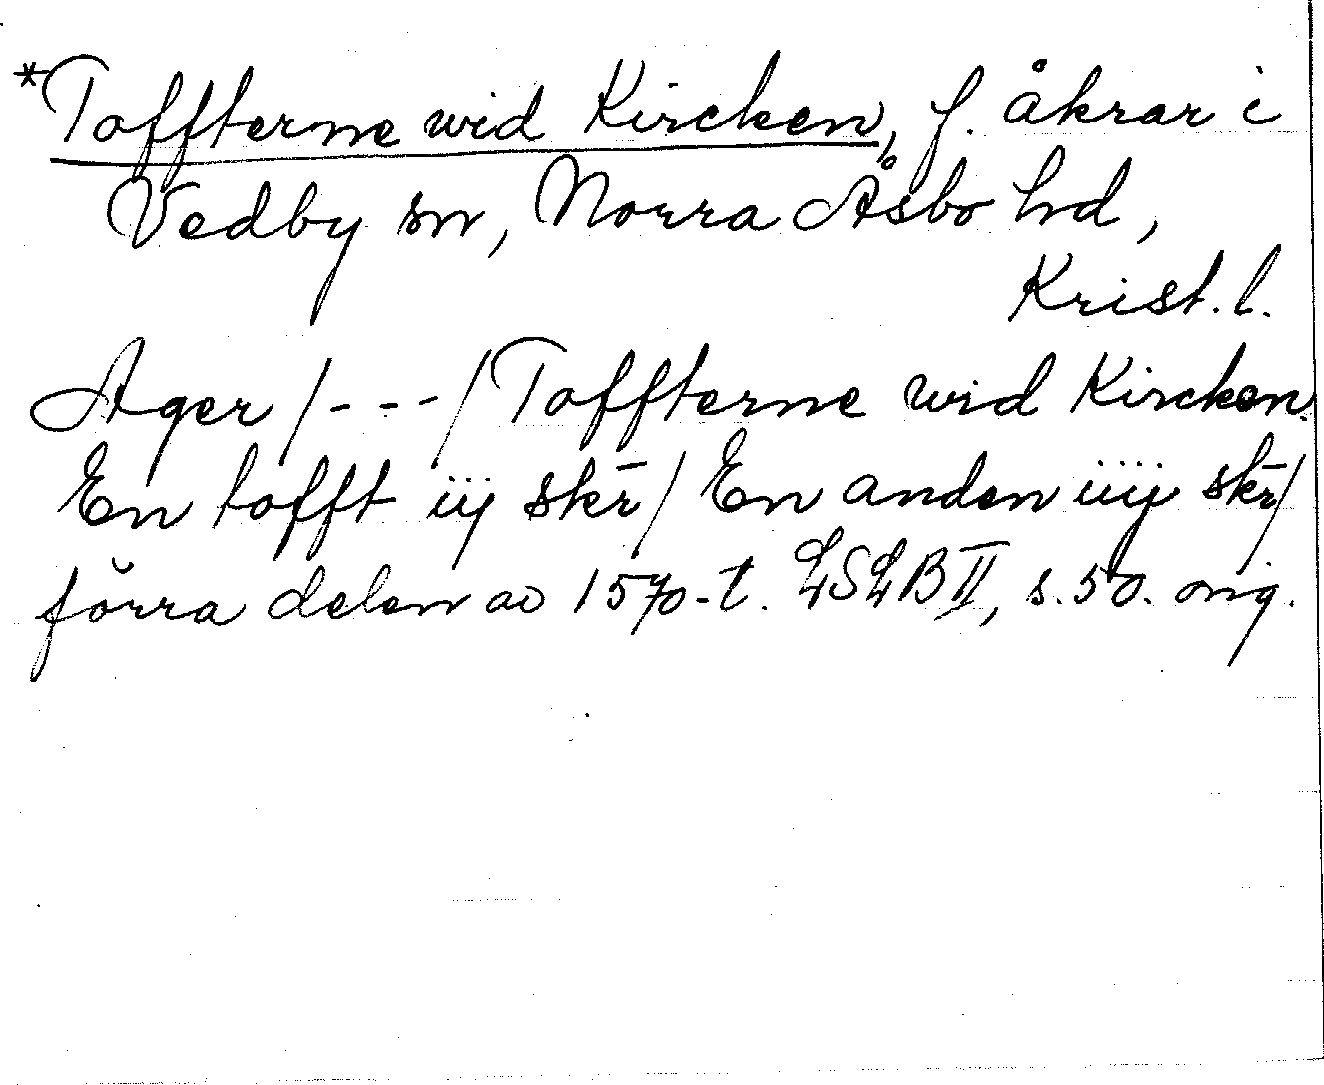 *Toffterne wid Kircken, f. åkrar i
Vedby sn, Norra Åsbo hd,
Krist. l.
Ager /---/ Toffterne wid Kircken.
En tofft iij skr̄ / En anden iiij skr̄ /
förra delen av 1570-t. LSLB II, s. 50. orig.